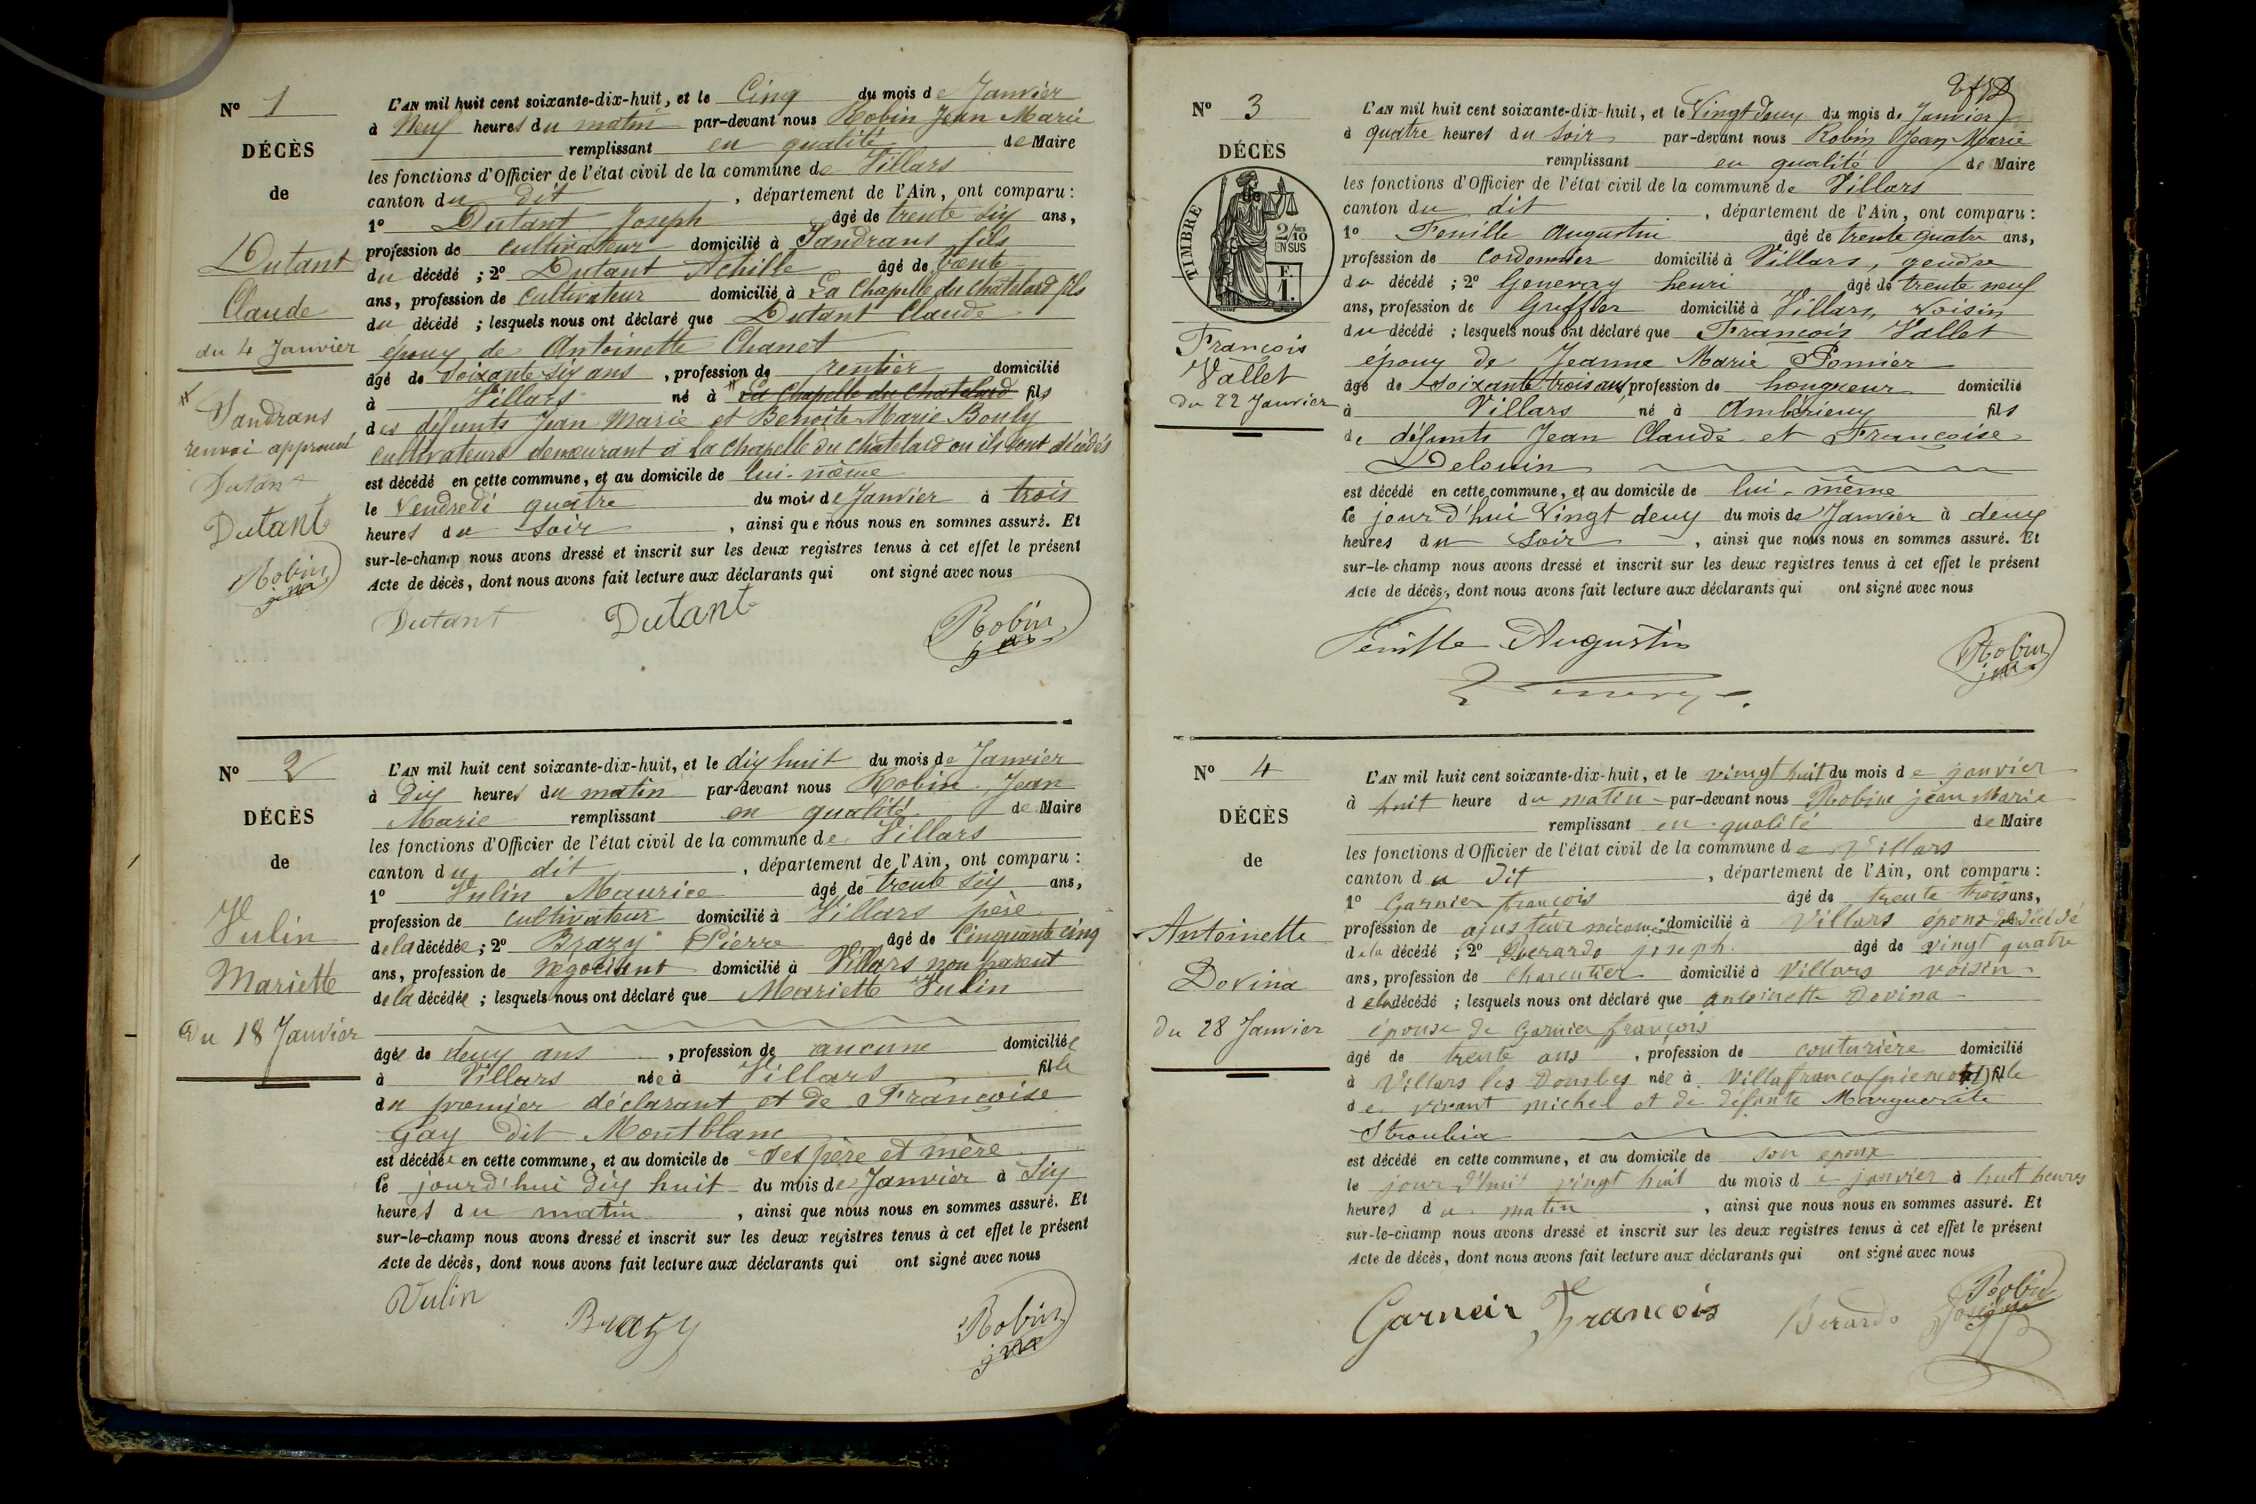 N° 1
DÉCÈS
de
Dutant
Claude
du 4 Janvier
Sandrans
renvoi approuvé
Dutant
Dutant
Robin
L'AN mil huit cent soixante-dix-huit, et le Cinq du mois de Janvier
à Neuf heures du matin par-devant nous Robin Jean Marie
remplissant en qualité de Maire
les fonctions d'Officier de l'état civil de la commune de Villars
canton du dit, département de l'Ain, ont comparu :
1° Dutant Joseph âgé de trente six ans,
profession de cultivateur domicilié à Sandrans fils
du décédé ; 2° Dutant Achille âgé de trente
ans, profession de cultivateur domicilié à La Chapelle du Chatelard fils
du décédé ; lesquels nous ont déclaré que Dutant Claude
époux de Antoinette Chanet
âgé de Soixante six ans, profession de rentier domicilié
à Villars né à La Chapelle du Chatelard fils
des défunts Jean Marie et Benoite Marie Bouly
cultivateurs demeurant à la chapelle du chatelard ou ils sont décédés
est décédé en cette commune, et au domicile de lui-même
le Vendredi quatre du mois de Janvier à trois
heures du soir, ainsi que nous nous en sommes assuré. Et
sur-le-champ nous avons dressé et inscrit sur les deux registres tenus à cet effet le présent
Acte de décès, dont nous avons fait lecture aux déclarants qui ont signé avec nous
Dutant Dutant Robin
N° 2
DÉCÈS
de
Vulin
Mariette
Du 18 Janvier
L'AN mil huit cent soixante-dix-huit, et le dix huit du mois de Janvier
à Dix heures du matin par-devant nous Robin Jean
Marie remplissant en qualité de Maire
les fonctions d'Officier de l'état civil de la commune de Villars
canton du dit, département de l'Ain, ont comparu :
1° Vulin Maurice âgé de trente six ans,
profession de cultivateur domicilié à Villars père
de la décédée ; 2° Brazy Pierre âgé de Cinquante cinq
ans, profession de Négociant domicilié à Villars non parent
de la décédée ; lesquels nous ont déclaré que Mariette Vulin
âgée de deux ans, profession de aucune domiciliée
à Villars née à Villars fille
du premier déclarant et de Françoise
Gay dit Montblanc
est décédée en cette commune, et au domicile de ses père et mère
le jourd'hui dix huit du mois de Janvier à Six
heures du matin, ainsi que nous nous en sommes assuré. Et
sur-le-champ nous avons dressé et inscrit sur les deux registres tenus à cet effet le présent
Acte de décès, dont nous avons fait lecture aux déclarants qui ont signé avec nous
Vulin Brazy Robin
N° 3
DÉCÈS
TIMBRE
2/10
EN SUS
F.
1.
François
Vallet
du 22 Janvier
L'AN mil huit cent soixante-dix-huit, et le Vingt deux du mois de Janvier
à quatre heures du soir par-devant nous Robin Jean Marie
remplissant en qualité de Maire
les fonctions d'Officier de l'état civil de la commune de Villars
canton du dit, département de l'Ain, ont comparu :
1° Feuille Augustin âgé de trente quatre ans,
profession de cordonnier domicilié à Villars, gendre
du décédé ; 2° Genevay henri âgé de trente neuf
ans, profession de Greffier domicilié à Villars, voisin
du décédé ; lesquels nous ont déclaré que François Vallet
époux de Jeanne Marie Pomier
âgé de Soixante trois ans, profession de hongreur domicilié
à Villars né à Ambérieux fils
de défunts Jean Claude et Françoise
Delouin
est décédé en cette commune, et au domicile de lui-même
le jourd'hui Vingt deux du mois de Janvier à deux
heures du soir, ainsi que nous nous en sommes assuré. Et
sur-le-champ nous avons dressé et inscrit sur les deux registres tenus à cet effet le présent
Acte de décès, dont nous avons fait lecture aux déclarants qui ont signé avec nous
Feuille Augustin Robin
N° 4
DÉCÈS
de
Antoinette
Dovina
du 28 Janvier
L'AN mil huit cent soixante-dix-huit, et le vingt huit du mois de janvier
à huit heure du matin par-devant nous Robin jean Marie
remplissant en qualité de Maire
les fonctions d'Officier de l'état civil de la commune de Villars
canton du Dit, département de l'Ain, ont comparu :
1° Garnier françois âgé de trente trois ans,
profession de ajusteur domicilié à Villars epoux de décédé
de la décédé ; 2° Berardo joseph âgé de vingt quatre
ans, profession de Charcutier domicilié à Villars voisin
de la décédé ; lesquels nous ont déclaré que antoinette Dovina
épouse de Garnier françois
âgé de trente ans, profession de couturière domicilié
à Villars les Dombes née à Villafranca (piemont) fille
de vivant michel et de défunte Marguerite
Stroubia
est décédé en cette commune, et au domicile de son epoux
le jour d'hui vingt huit du mois de janvier à huit heures
heures du matin, ainsi que nous nous en sommes assuré. Et
sur-le-champ nous avons dressé et inscrit sur les deux registres tenus à cet effet le présent
Acte de décès, dont nous avons fait lecture aux déclarants qui ont signé avec nous
Garneir François Berardo Robin